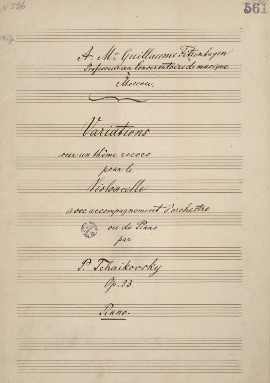 No 226
561
A Mr Guillaume Fitzenhagen
Professeur au Conservatoire de musique
à Moscou.
Variations
sur un thème rococo
pour le
Violoncelle
avec accompagnement d'orchestre
ou de Piano
par
P. Tchaikovsky
Op. 33.
Piano.